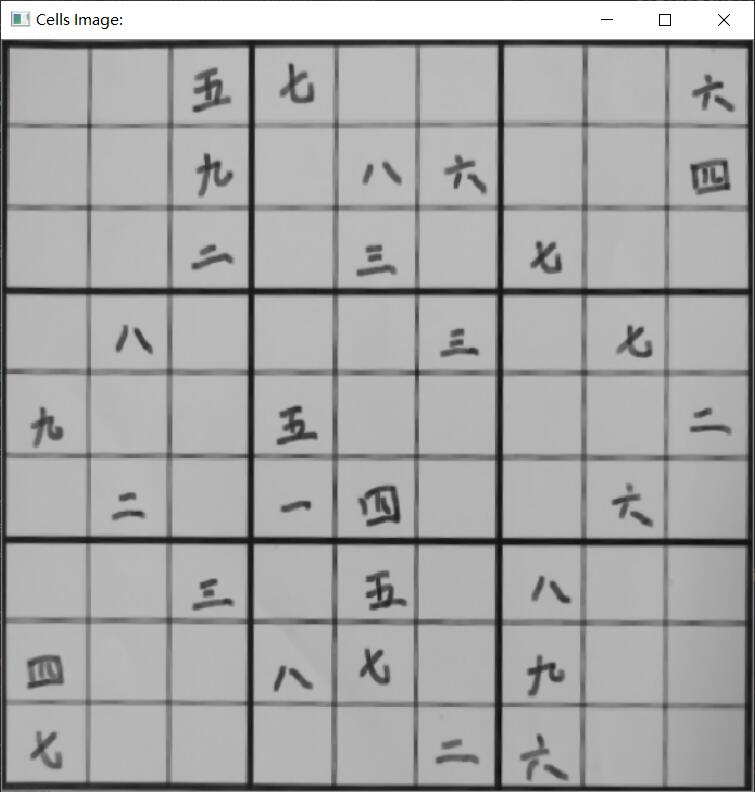 Cells Image:
五 七 六
九 八 六 四
二 三 七
八 三 七
九 五 二
二 一 四 六
三 五 八
四 八 七 九
七 二 六